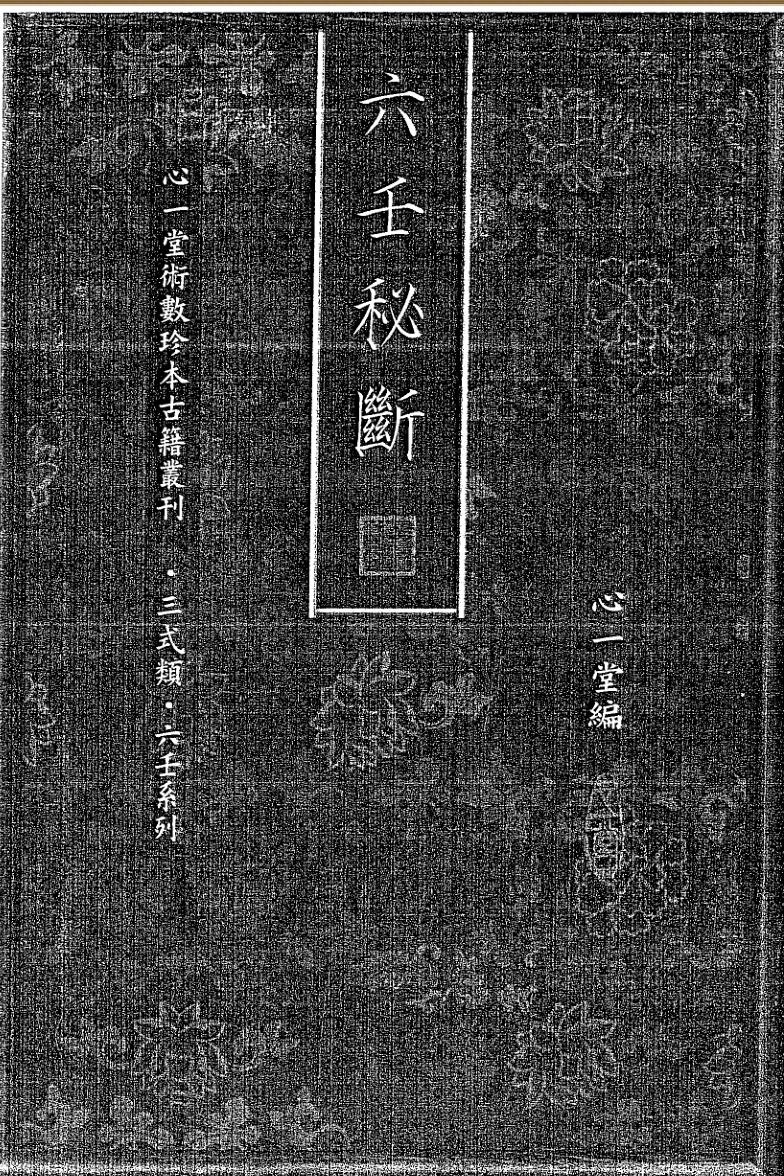 心一堂編
六壬秘斷
心一堂術數珍本古籍叢刊 ・三式類・六壬系列